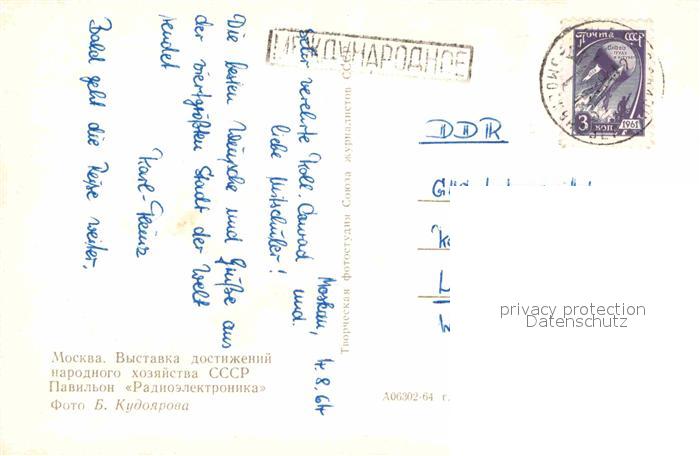 МЕЖДУНАРОДНОЕ
ПОЧТА СССР
3 КОП
1961
DDR
Moskau,
4.8.64
Sehr verehrte Koll. Conrad und
liebe Mitschüler!
Die besten Wünsche und Grüße aus
der viertgrößten Stadt der Welt
sendet
Karl-Heinz
Bald geht die Reise weiter.
Творческая фотостудия Союза журналистов СССР
privacy protection
Datenschutz
Москва. Выставка достижений
народного хозяйства СССР
Павильон «Радиоэлектроника»
Фото Б. Кудоярова
А06302-64 г.